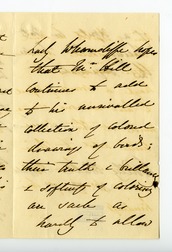 Lady Wharncliffe hopes
that Mr. Hill
continues to add
to his unrivalled
collection of colored
drawings of birds;
their truth & brilliance
& softness of coloring
are such as
hardly to allow